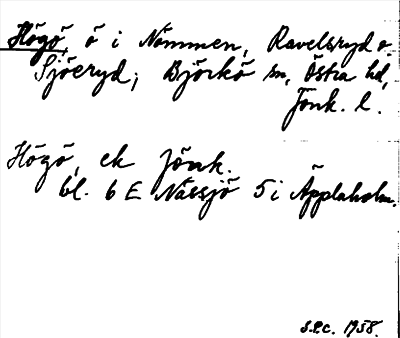 Högö, ö i Nömmen, Ravelsryd o.
Sjöeryd; Björkö sn, Östra hd,
Jönk. l.
Högö, ek Jönk.
bl. 6 E Nässjö 5 i Äpplaholm.
S.P.C. 1958.